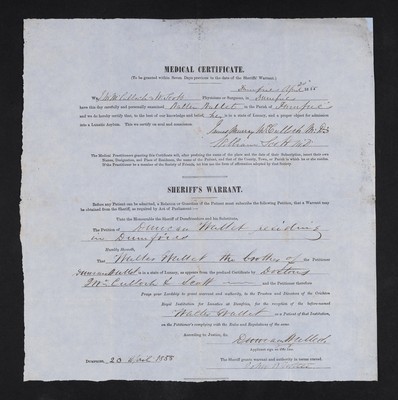 MEDICAL CERTIFICATE.
(To be granted within Seven Days previous to the date of the Sheriffs' Warrant.)
Dumfries April 1855
We J M McCulloch & W Scott Physicians or Surgeons, in Dumfries
have this day carefully and personally examined Walter Wallet in the Parish of Dumfries
and we do hereby certify that, to the best of our knowledge and belief, he is in a state of Lunacy, and a proper object for admission
into a Lunatic Asylum. This we certify on soul and conscience.
James Murray McCulloch M.D.
William Scott M.D.
The Medical Practitioners granting this Certificate will, after prefixing the name of the place and the date of their Subscription, insert their own
Names, Designation, and Place of Residence, the name of the Patient, and that of the County, Town, or Parish in which he or she resides.
If the Practitioner be a member of the Society of Friends, he may use the form of affirmation allowed by that Society.
SHERIFF'S WARRANT.
Before any Patient can be admitted, a Relation or Guardian of the Patient must subscribe the following Petition, that a Warrant may
be obtained from the Sheriff, as required by Act of Parliament:—
Unto the Honourable the Sheriff of Dumfriesshire and his Substitutes,
The Petition of Duncan Wallet residing
in Dumfries
Humbly Sheweth,
That Walter Wallet the brother of the Petitioner
Duncan Wallet is in a state of Lunacy, as appears from the prefixed Certificate by Doctors
J McCulloch & Scott and the Petitioner therefore
Prays your Lordship to grant warrant and authority, to the Trustees and Directors of the Crichton
Royal Institution for Lunatics at Dumfries, for the reception of the before-named
Walter Wallet as a Patient of that Institution,
on the Petitioner's complying with the Rules and Regulations of the same.
According to Justice, &c.
Duncan Wallet
Applicant sign on this line.
Dumfries, 20 1855 The Sheriff grants warrant and authority in terms craved.